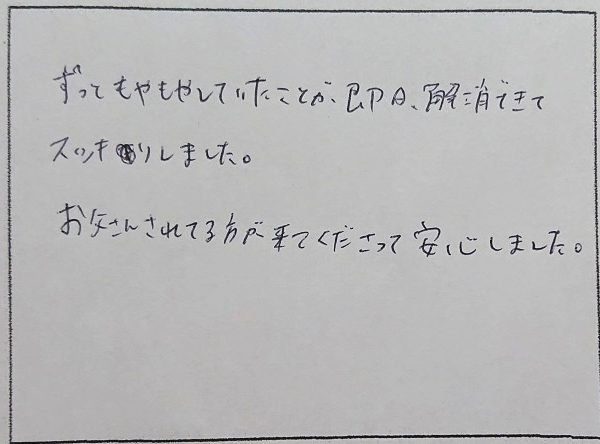 ずっともやもやしていたことが、即日、解消できて
スッキリしました。
お父さんされてる方が来てくださって安心しました。